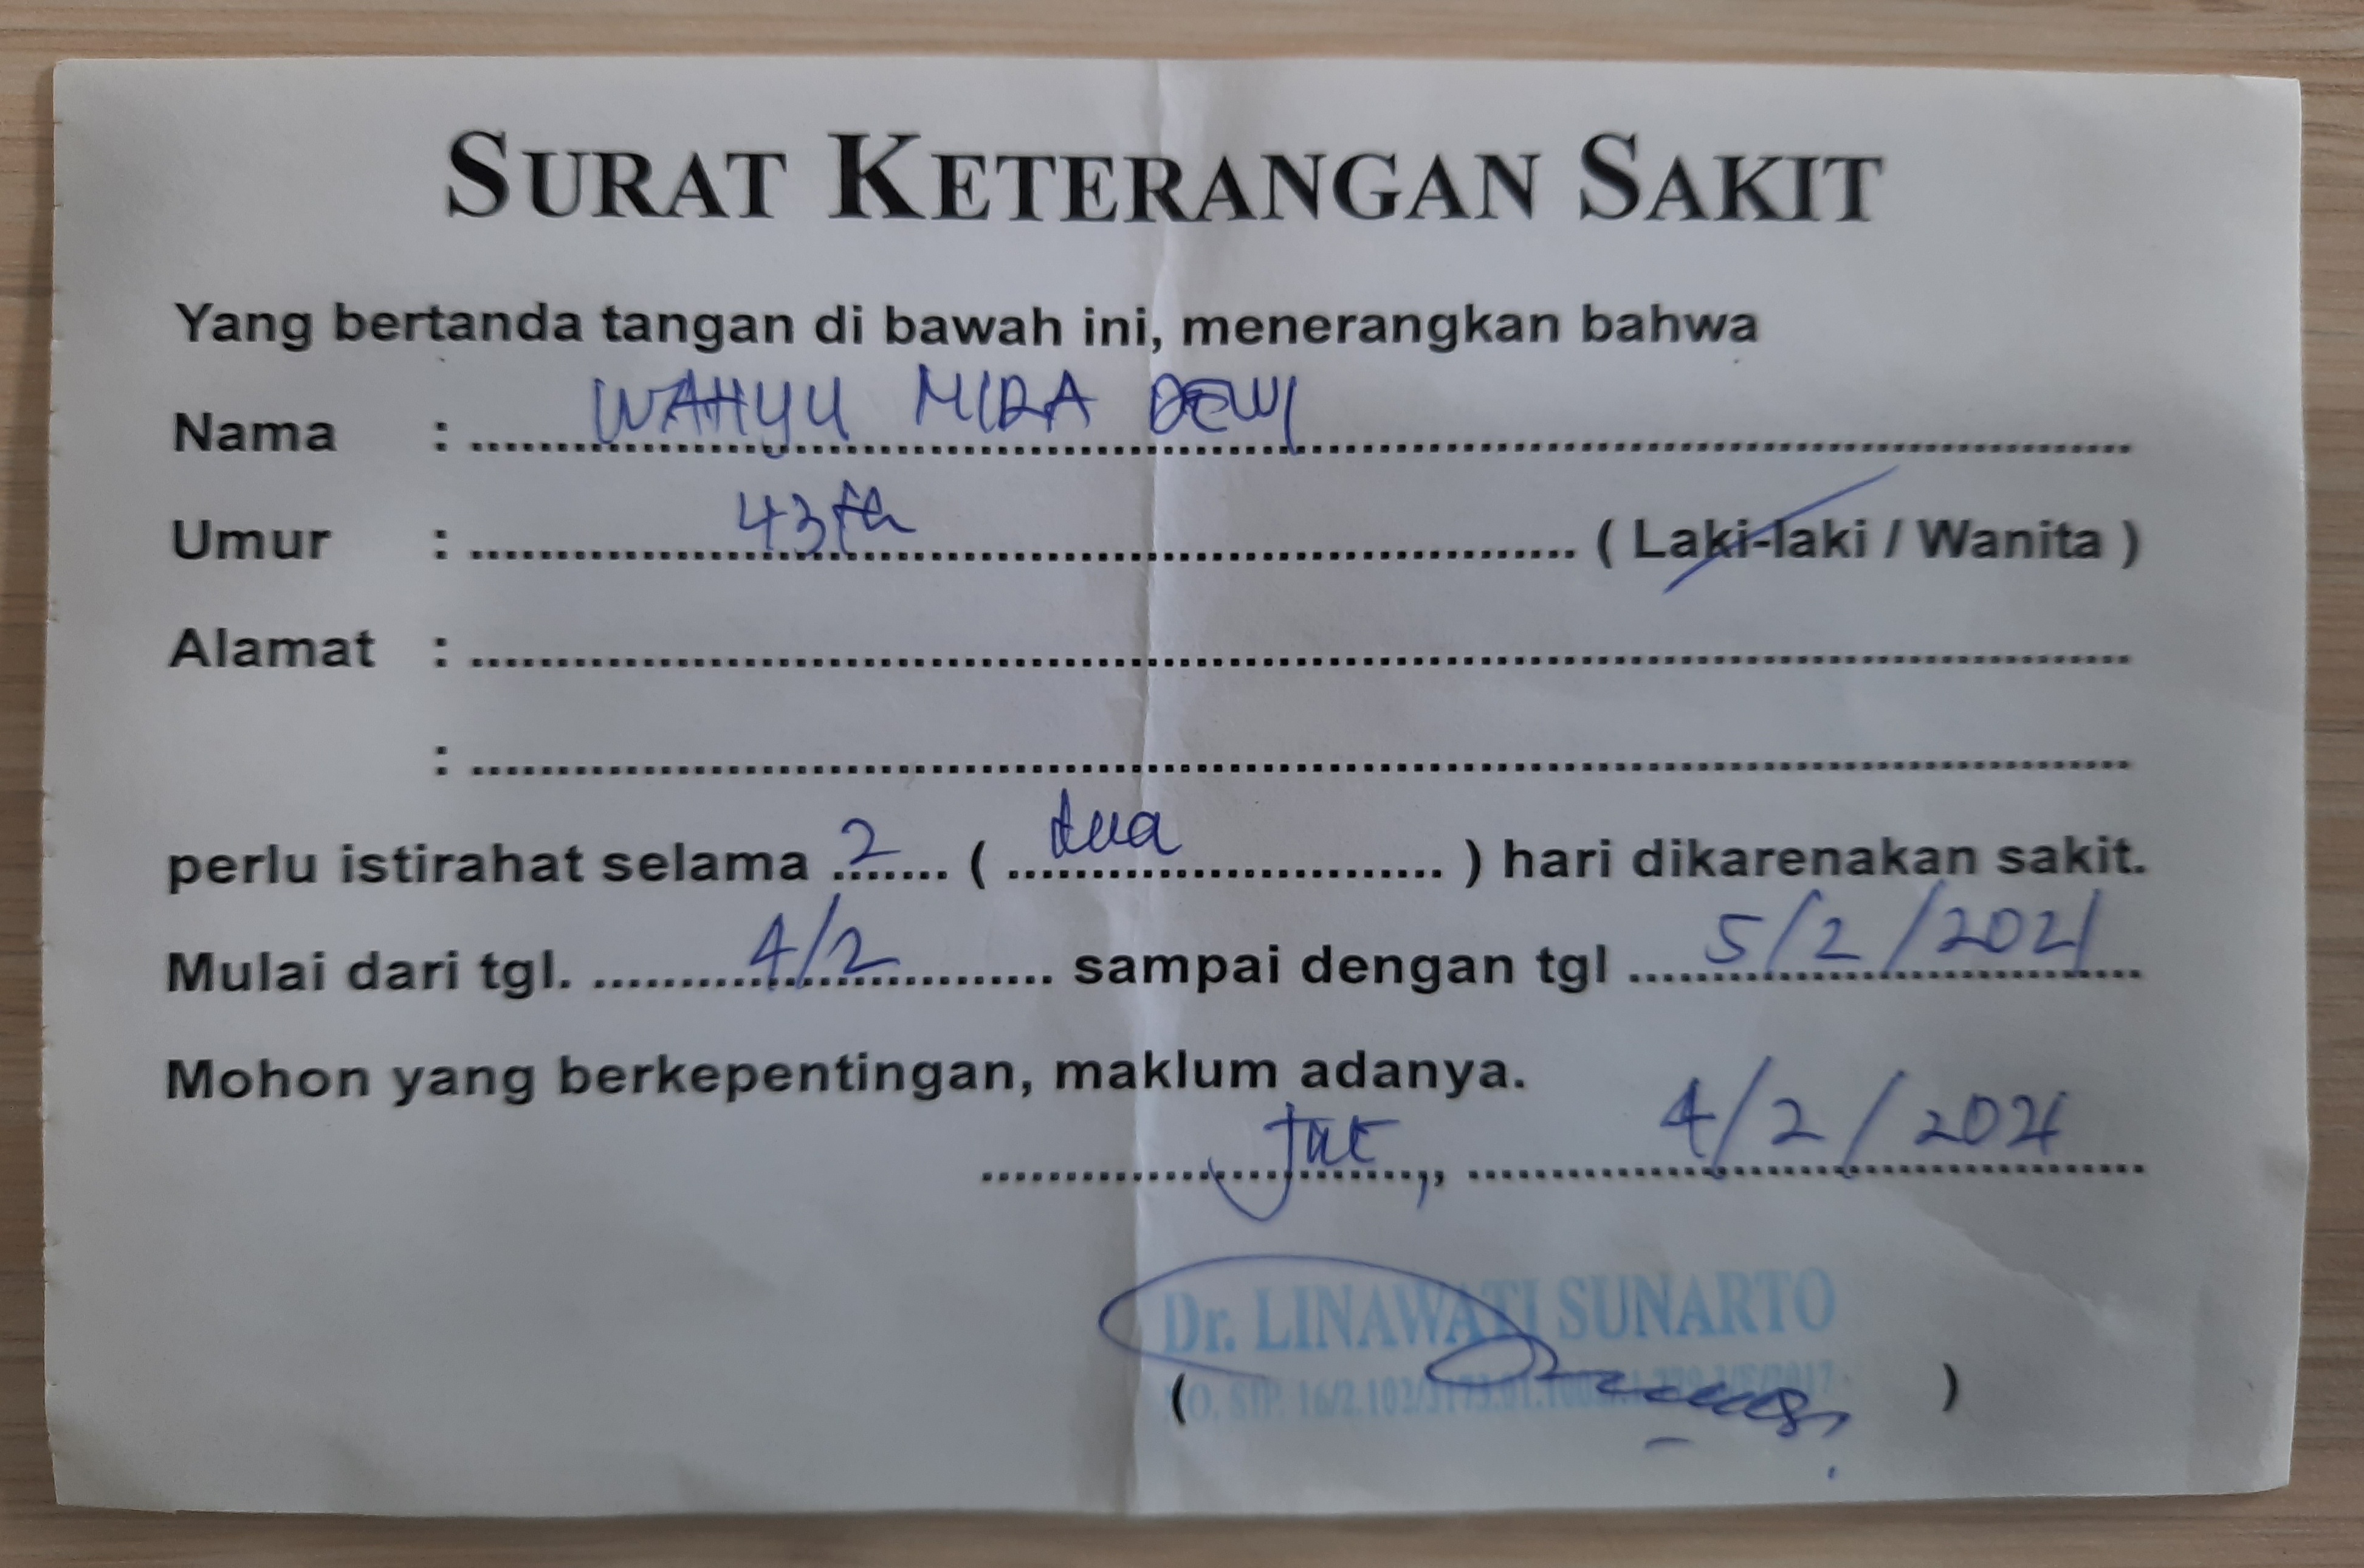 SURAT KETERANGAN SAKIT
Yang bertanda tangan di bawah ini, menerangkan bahwa
Nama : WAHYU MIRA DEWI
Umur : 43 th ( Laki-laki / Wanita )
Alamat :
:
perlu istirahat selama 2 ( dua ) hari dikarenakan sakit.
Mulai dari tgl. 4/2 sampai dengan tgl 5/2/2021
Mohon yang berkepentingan, maklum adanya.
Jkt, 4/2/2021
Dr. LINAWATI SUNARTO
( NO. SIP. )